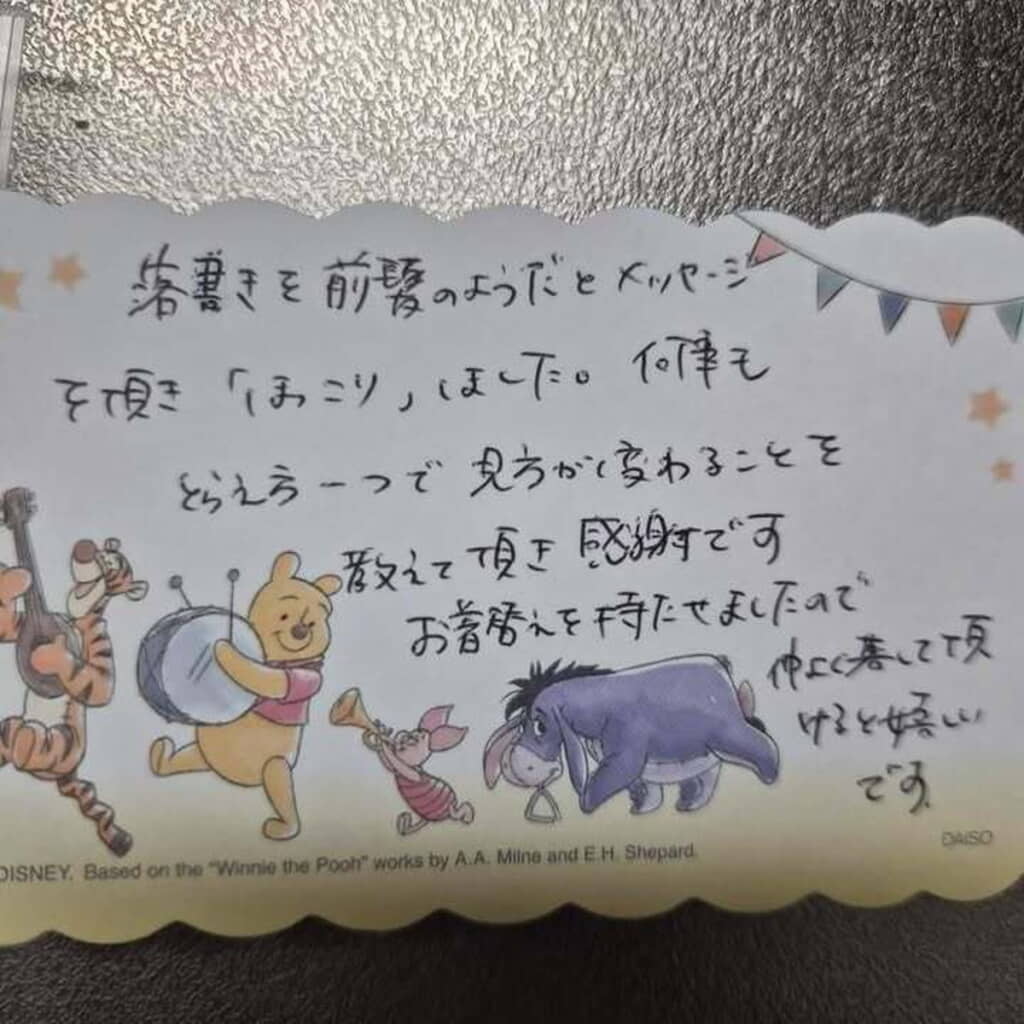 落書きを前髪のようだとメッセージ
を頂き「ほっこり」しました。何事も
とらえ方一つで見方が変わることを
教えて頂き感謝すです
お着替えを持たせましたので
仲よく暮して頂
けると嬉しい
です
DISNEY. Based on the "Winnie the Pooh" works by A.A. Milne and E.H. Shepard.
DAISO